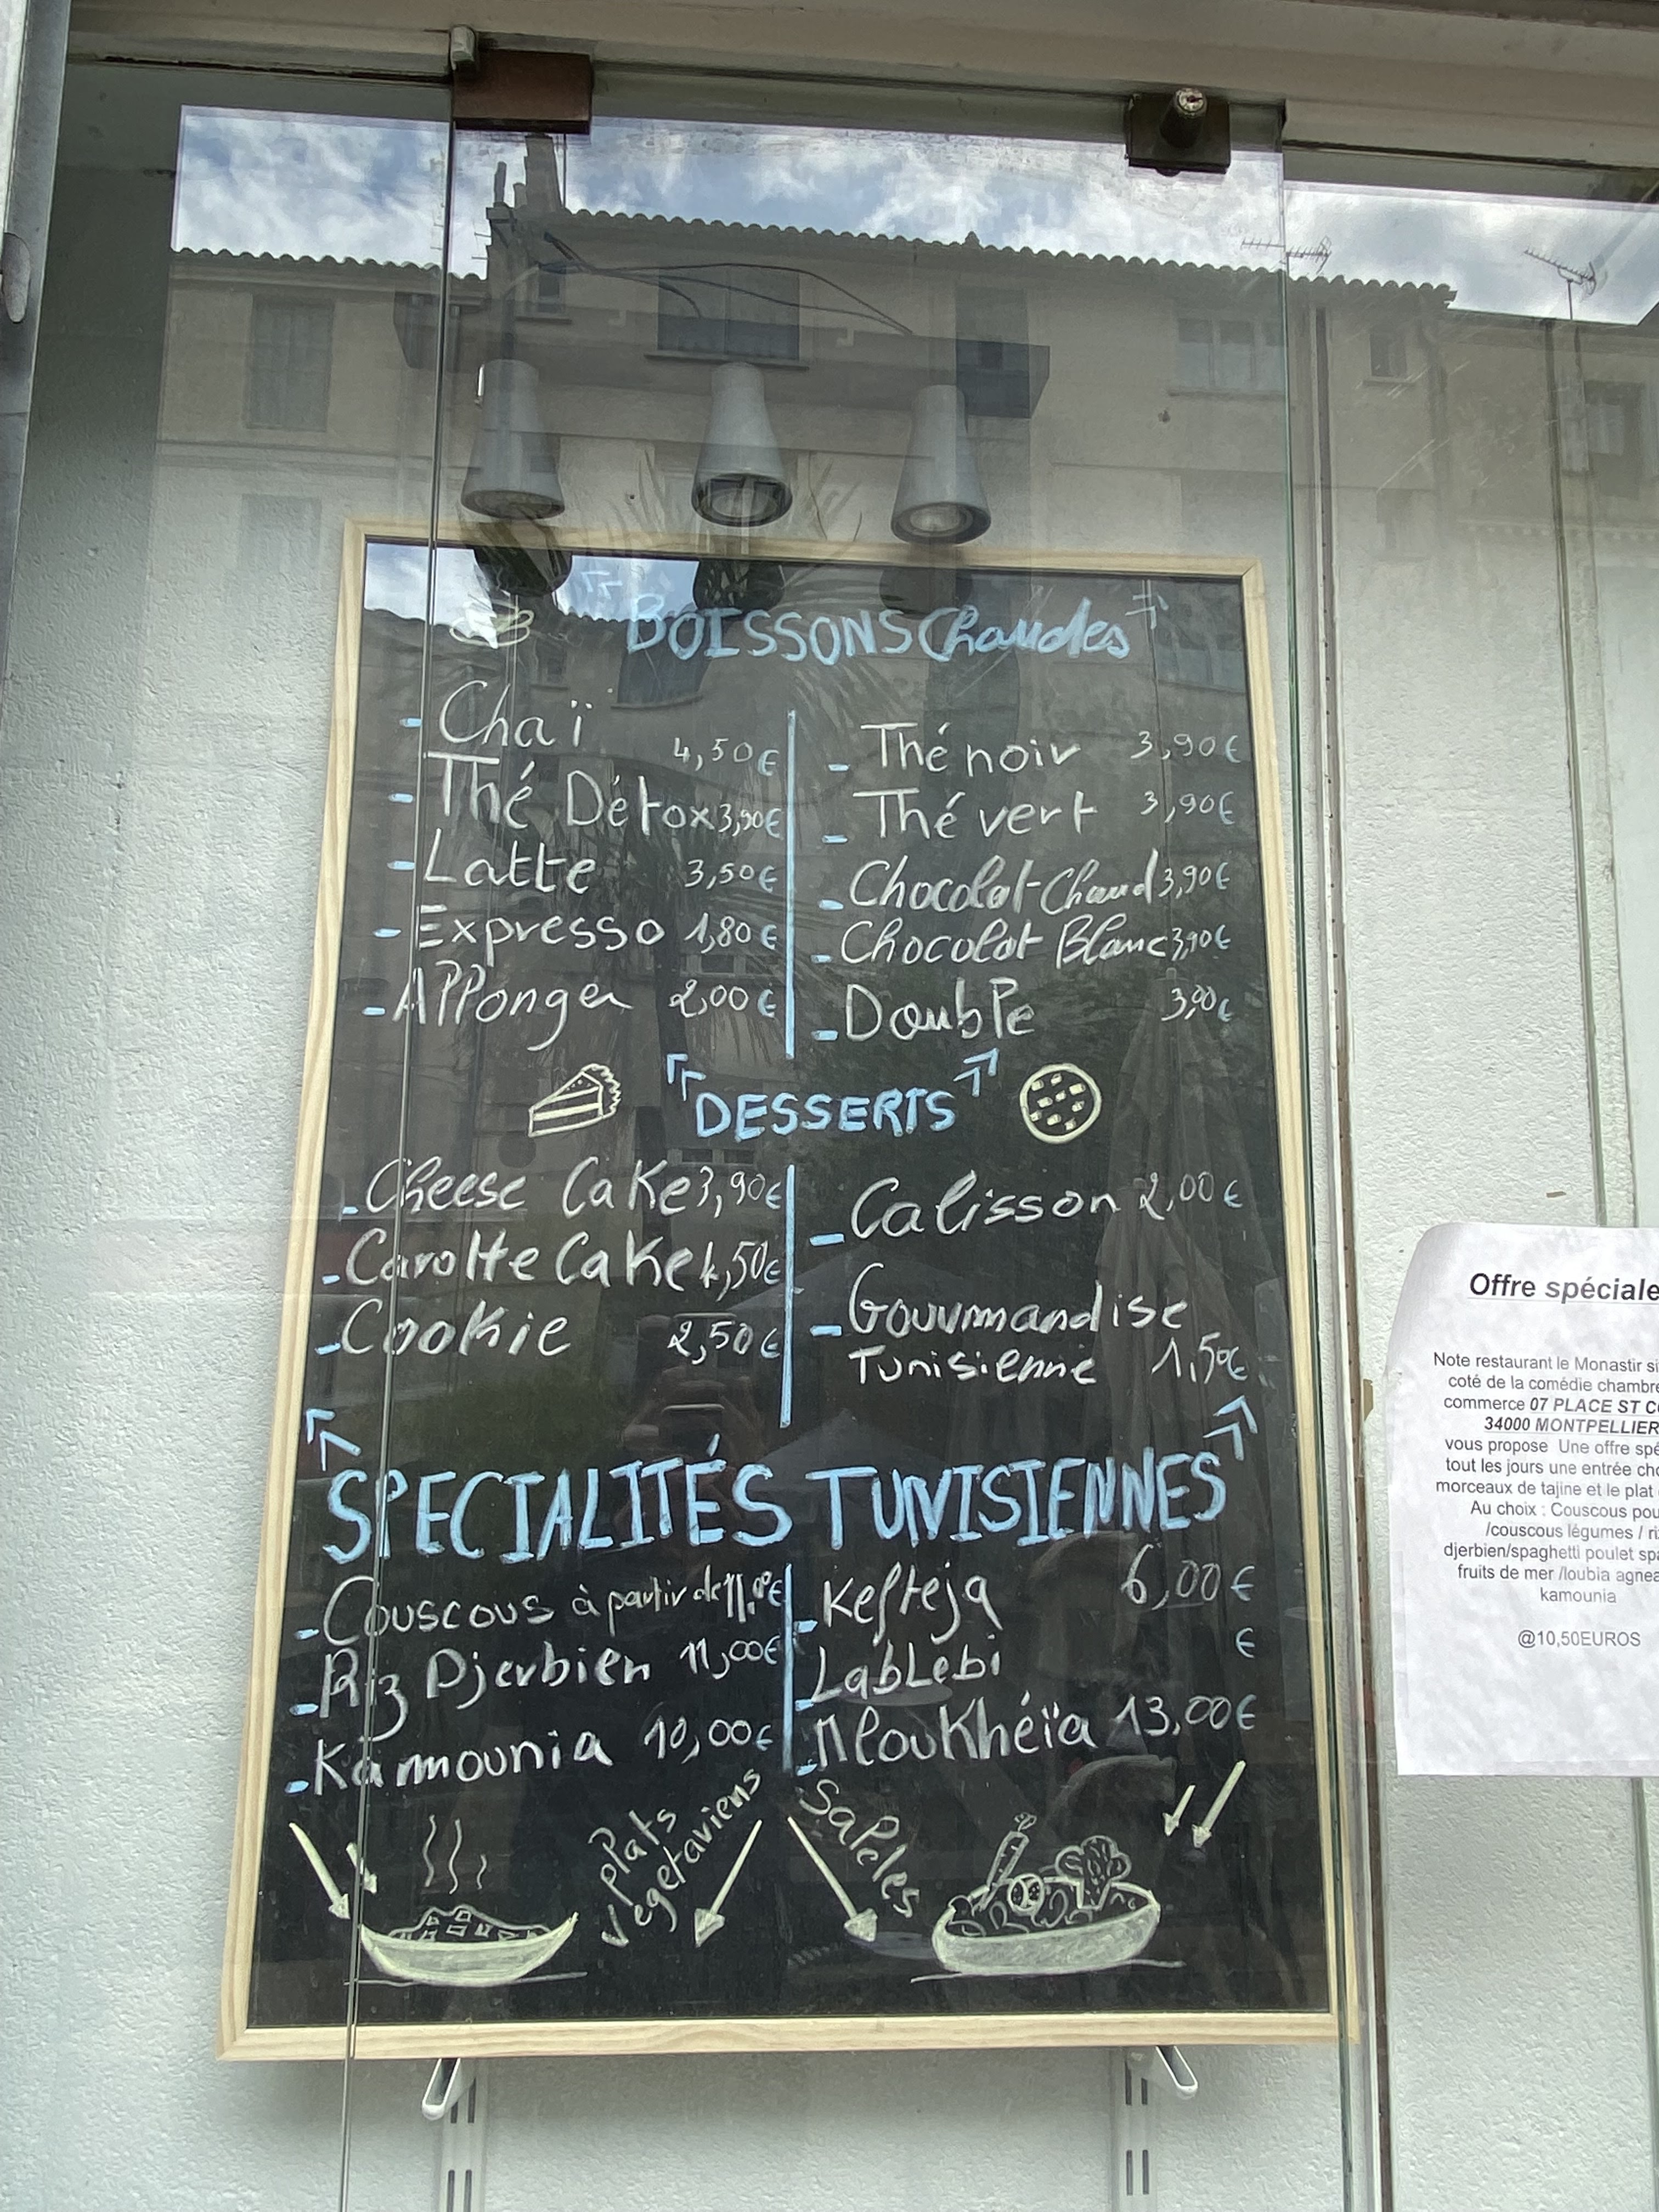 BOISSONS Chaudes
- Chaï 4,50€
- Thé Détox 3,90€
- Latte 3,50€
- Expresso 1,80€
- Allonger 2,00€
- Thé noir 3,90€
- Thé vert 3,90€
- Chocolat Chaud 3,90€
- Chocolat Blanc 3,90€
- Double 3,90€
DESSERTS
- Cheese Cake 3,90€
- Carotte Cake 4,50€
- Cookie 2,50€
- Calisson 2,00€
- Gourmandise
Tunisienne 1,50€
SPECIALITÉS TUNISIENNES
- Couscous à partir de 11,00€
- Riz Djerbien 11,00€
- Kamounia 10,00€
- Kefteja 6,00€
- LabLebi €
- Mloukhéïa 13,00€
Plats
vegetariens
Salades
Offre spéciale
Note restaurant le Monastir si
coté de la comédie chambre
commerce 07 PLACE ST C
34000 MONTPELLIER
vous propose Une offre spé
tout les jours une entrée cho
morceaux de tajine et le plat
Au choix : Couscous pou
/couscous légumes / ri
djerbien/spaghetti poulet spa
fruits de mer /loubia agnea
kamounia
@10,50EUROS